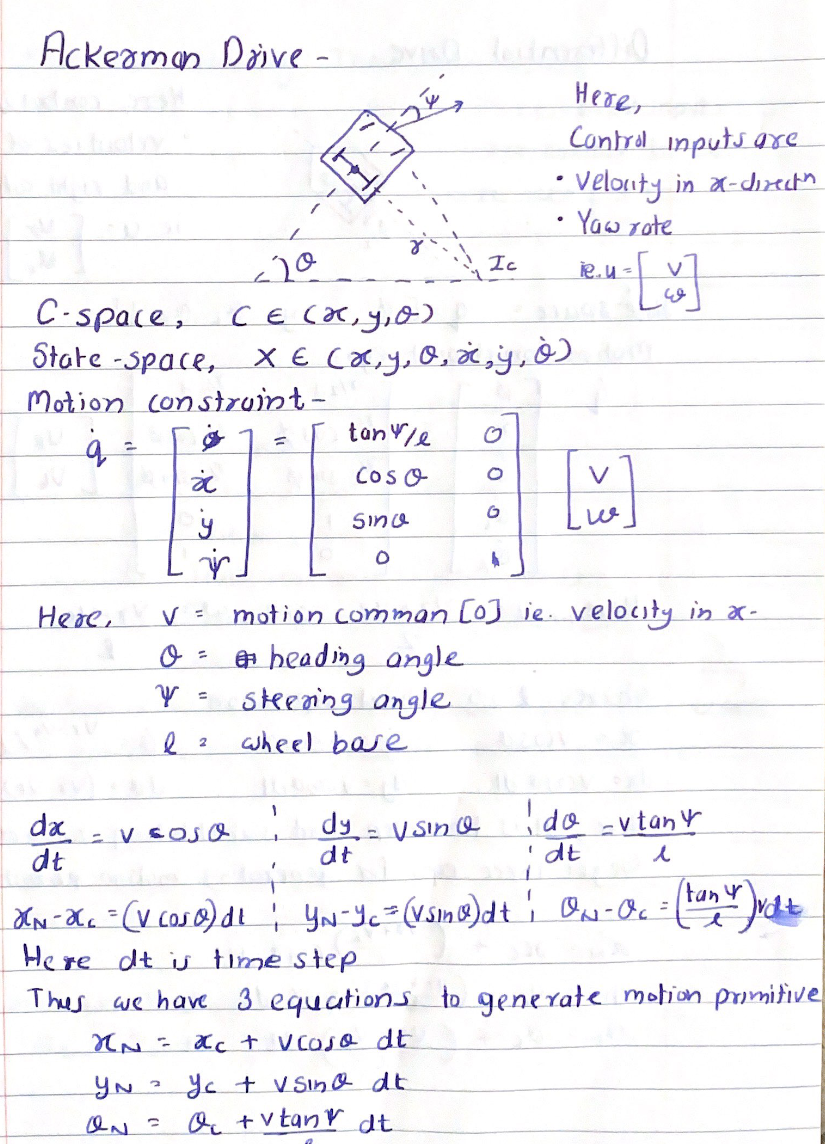 Ackerman Drive -
ψ
θ
r
Ic
Here,
Control inputs are
• Velocity in x-directn
• Yaw rate
ie. u = [ v
ω ]
C-space, C ∈ (x, y, θ)
State-space, X ∈ (x, y, θ, ẋ, ẏ, θ̇)
Motion constraint -
q̇ = [ θ̇ ] = [ tanψ/l 0 ] [ v ]
[ ẋ ] [ cosθ 0 ] [ ω ]
[ ẏ ] [ sinθ 0 ]
[ ψ̇ ] [ 0 1 ]
Here, v = motion comman [0] ie. velocity in x-
θ = heading angle
ψ = steering angle
l = wheel base
dx/dt = v cosθ ¦ dy/dt = v sinθ ¦ dθ/dt = v tanψ/l
xN - xc = (v cosθ) dt ¦ yN - yc = (v sinθ) dt ¦ θN - θc = (tanψ/l) v dt
Here dt is time step
Thus we have 3 equations to generate motion primitive
xN = xc + v cosθ dt
yN = yc + v sinθ dt
θN = θc + v tanψ/l dt